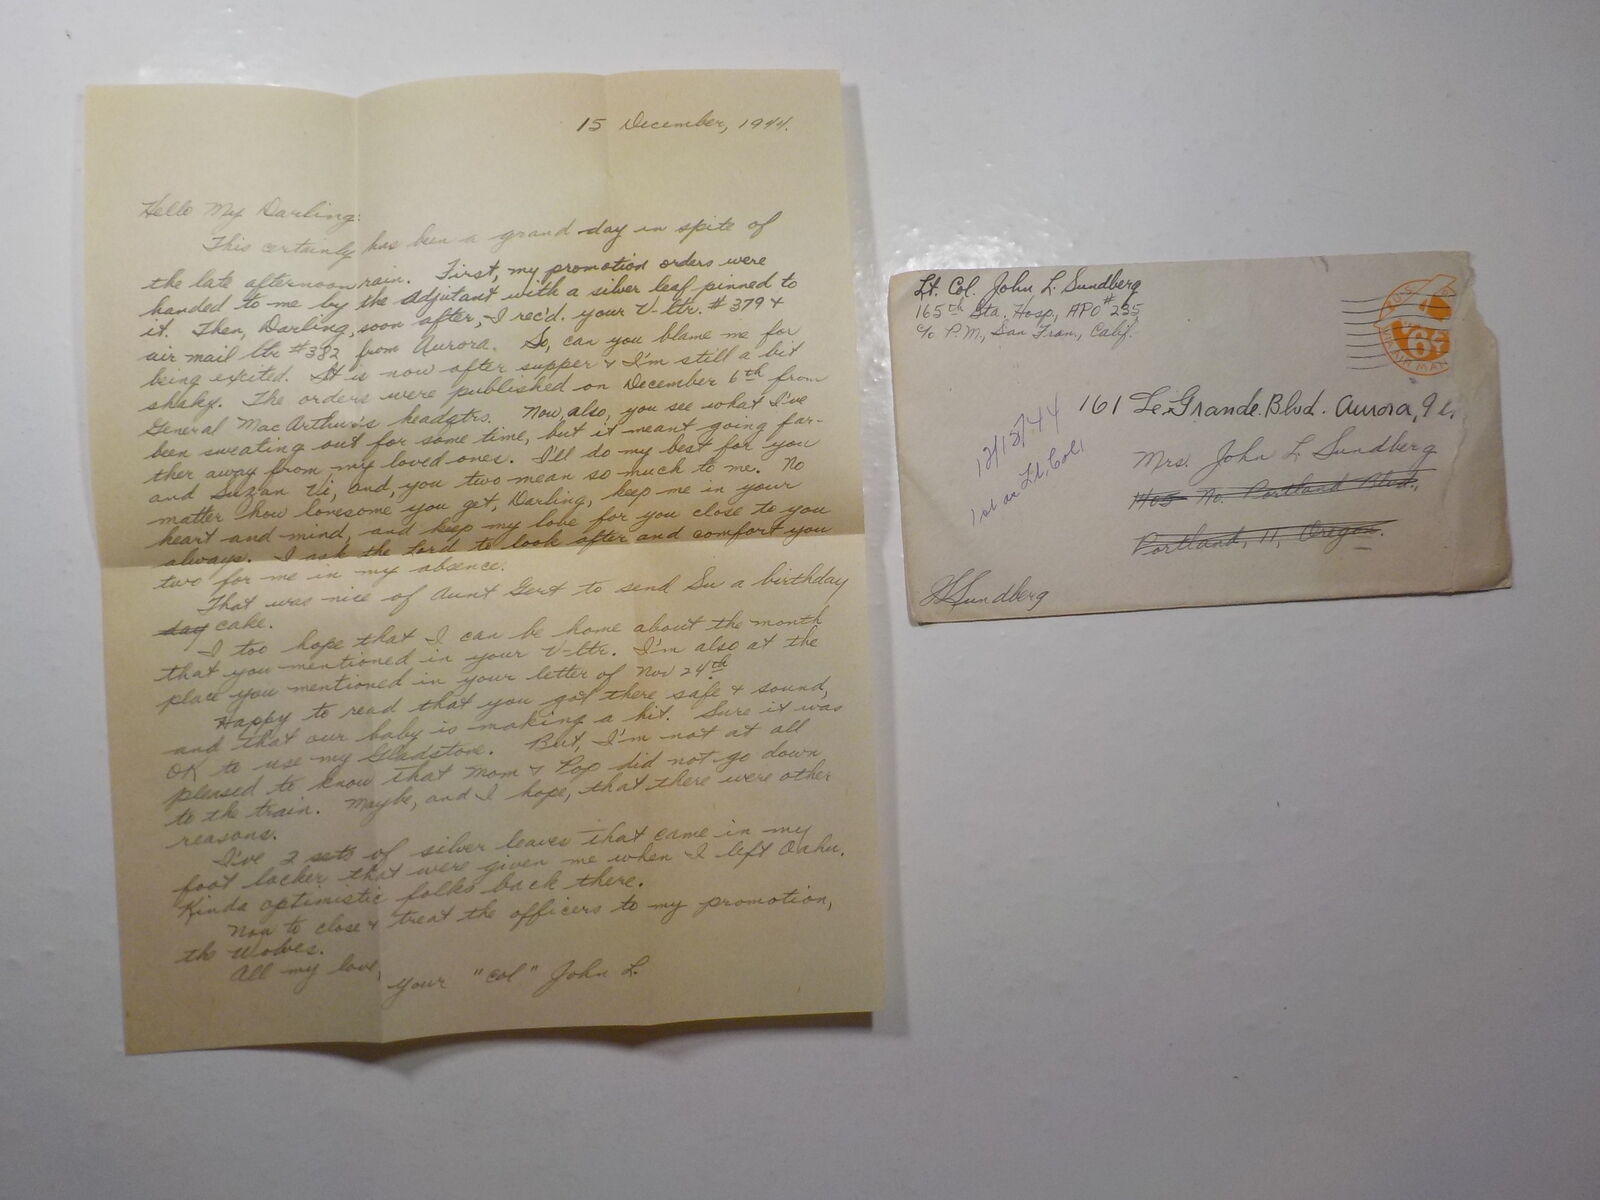 15 December, 1944.
Hello My Darling:
This certainly has been a grand day in spite of
the late afternoon rain. First, my promotion orders were
handed to me by the Adjutant with a silver leaf pinned to
it. Then, Darling, soon after, I rec'd. your V-ltr. #379 &
air mail ltr #382 from Aurora. So, can you blame me for
being excited. It is now after supper & I'm still a bit
shaky. The orders were published on December 6th from
General MacArthur's headqtrs. Now, also, you see what I've
been sweating out for some time, but it meant going far-
ther away from my loved ones. I'll do my best for you
and Suzan Vi, and, you two mean so much to me. No
matter how lonesome you get, Darling, keep me in your
heart and mind, and keep my love for you close to you
always. I ask the Lord to look after and comfort you
two for me in my absence.
That was nice of Aunt Gert to send Su a birthday
day cake.
I too hope that I can be home about the month
that you mentioned in your V-ltr. I'm also at the
place you mentioned in your letter of Nov 24th.
Happy to read that you got there safe & sound,
and that our baby is making a hit. Sure it was
OK to use my Gladstone. But, I'm not at all
pleased to know that Mom & Pop did not go down
to the train. Maybe, and I hope, that there were other
reasons.
I've 2 sets of silver leaves that came in my
foot locker that were given me when I left Oahu.
Kinda optimistic folks back there.
Now to close & treat the officers to my promotion,
the wolves.
All my love,
your "Col" John L.
Lt. Col. John L. Sundberg
165th Sta. Hosp, APO #235
c/o P.M., San Fran., Calif.
6¢
12/15/44
1st as Lt. Col.
161 Le Grande Blvd. Aurora, Ill.
Mrs. John L Sundberg
1405 No. Portland Blvd.,
Portland, 11, Oregon.
JLSundberg